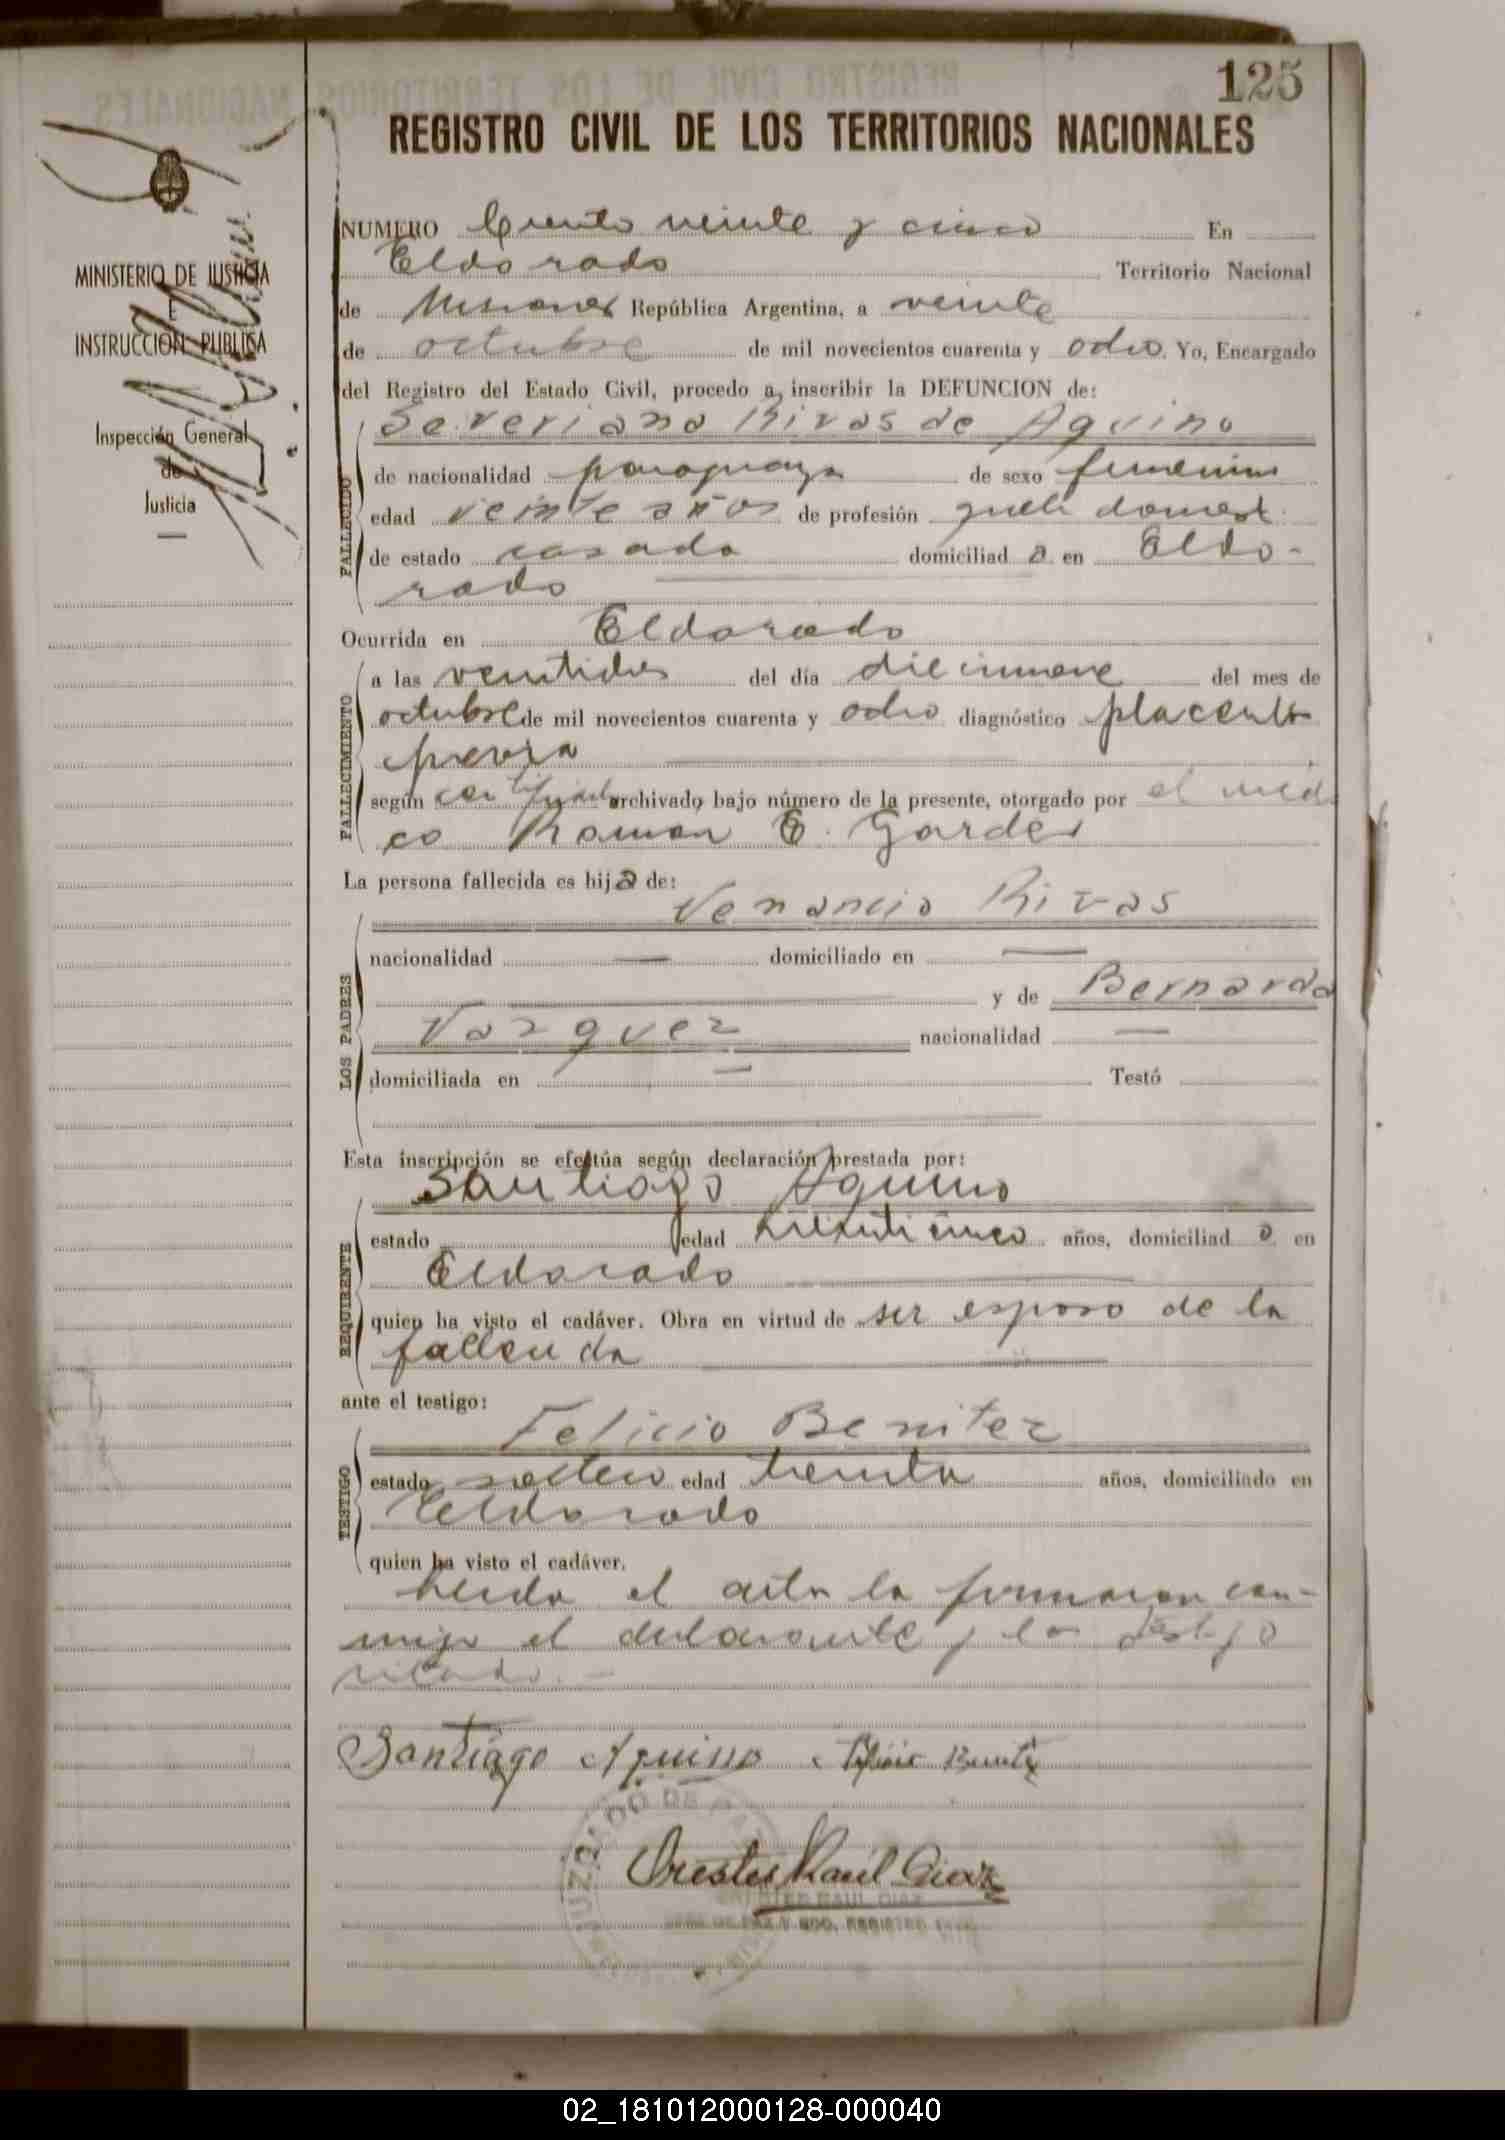 125
REGISTRO CIVIL DE LOS TERRITORIOS NACIONALES
MINISTERIO DE JUSTICIA
E
INSTRUCCIÓN PUBLICA
Inspección General
de
Justicia
NUMERO Ciento veinte y cinco En
Eldorado Territorio Nacional
de Misiones República Argentina, a veinte
de octubre de mil novecientos cuarenta y ocho. Yo, Encargado
del Registro del Estado Civil, procedo a inscribir la DEFUNCION de:
Severiana Rivas de Aquino
FALLECIDO
de nacionalidad paraguaya de sexo femenino
edad veinte años de profesión queh. domest.
de estado casada domiciliad a en Eldo-
rado
Ocurrida en Eldorado
FALLECIMIENTO
a las ventidos del día diecinueve del mes de
octubre de mil novecientos cuarenta y ocho diagnóstico placenta
previa
según certificado archivado bajo número de la presente, otorgado por el médi
co Roman E. Gardes
La persona fallecida es hija de:
Venancio Rivas
LOS PADRES
nacionalidad — domiciliado en —
y de Bernarda
Vazquez nacionalidad —
domiciliada en — Testó
Esta inscripción se efectúa según declaración prestada por:
Santiago Aquino
REQUIRENTE
estado edad treinticinco años, domiciliad o en
Eldorado
quien ha visto el cadáver. Obra en virtud de ser esposo de la
fallecida
ante el testigo:
Felicio Benitez
TESTIGO
estado soltero edad treinta años, domiciliado en
Eldorado
quien ha visto el cadáver.
Leida el acta la firmaron con-
migo el declarante y los testigo
citado. —
Santiago Aquino Felicio Benitez
JUZGADO DE PAZ
Orestes Raúl Diaz
ORESTES RAUL DIAZ
JUEZ DE PAZ Y ENC. REGISTRO CIVIL
02_181012000128-000040